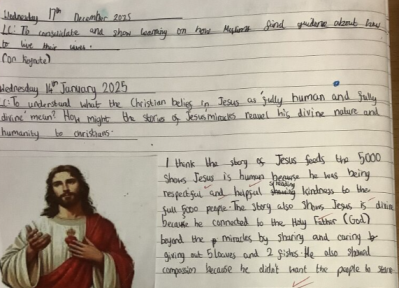 Wednesday 17th December 2025
LC: To consolidate and show learning on how find guidance about how
to live their lives.
(on
Wednesday 14th January 2025
L: To understand what the Christian belief in Jesus as 'fully human and fully
divine' mean? How might the stories of Jesus' miracles reveal his divine nature and
humanity to christians.
I think the story of Jesus feeds the 5000
shows Jesus is human because he was being
respectful and helpful spreading kindness to the
full 5000 people. The story also shows Jesus is divine
because he connected to the Holy Father (God)
beyond the miracles by sharing and caring by
giving out 5 loaves and 2 fishs. He also showed
compassion because he didn't want the people to starve